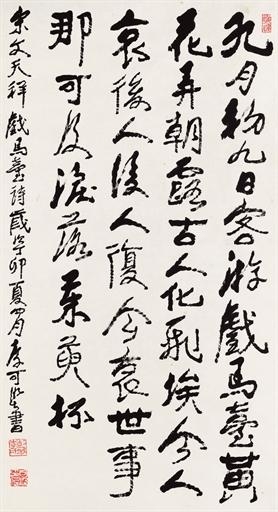 九月初九日客游戲馬臺黃
花弄朝露古人化飛埃今人
哀後人後人復今哀世事
那可及淚落茱萸杯
宋文天祥戲馬臺詩歲辛卯夏月可書